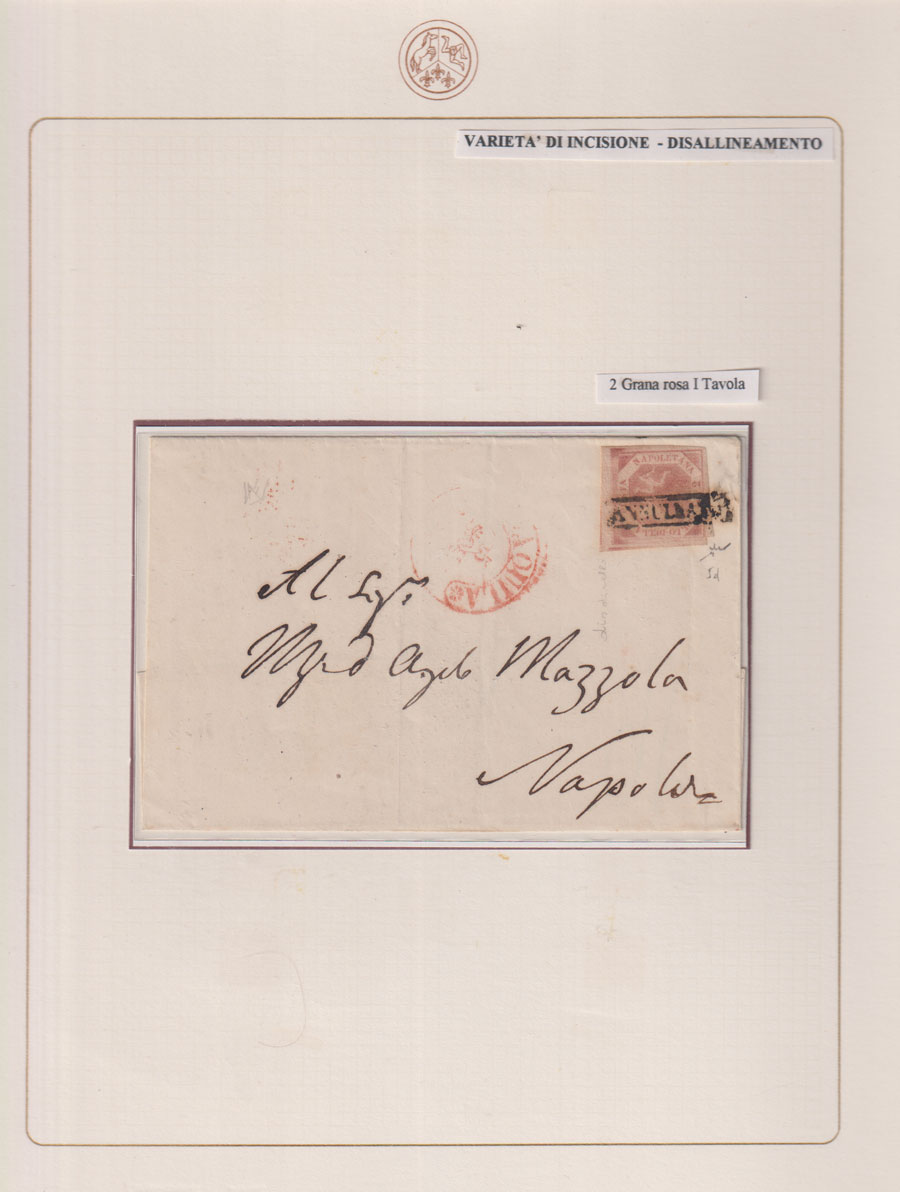 VARIETA’ DI INCISIONE - DISALLINEAMENTO
2 Grana rosa I Tavola
NAPOLETANA
ANNULLATO
AQUILA
Al Sigr
Angelo Mazzola
Napoli